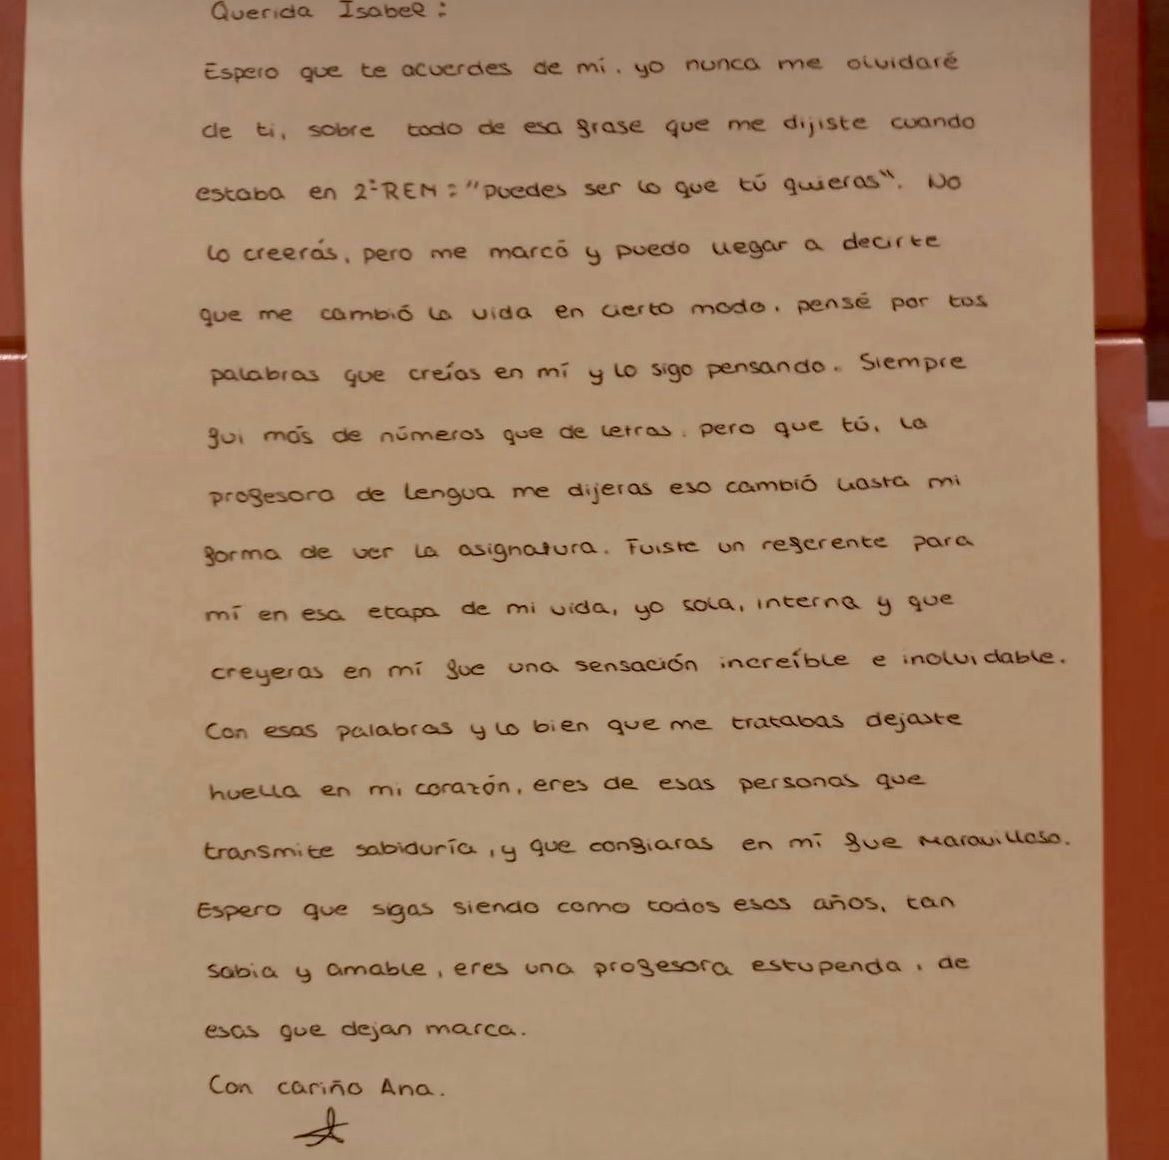 Querida Isabel:
Espero que te acuerdes de mí, yo nunca me olvidaré
de ti, sobre todo de esa frase que me dijiste cuando
estaba en 2º REM: "puedes ser lo que tú quieras". No
lo creerás, pero me marcó y puedo llegar a decirte
que me cambió la vida en cierto modo, pensé por tus
palabras que creías en mí y lo sigo pensando. Siempre
fui más de números que de letras, pero que tú, la
profesora de lengua me dijeras eso cambió hasta mi
forma de ver la asignatura. Fuiste un referente para
mí en esa etapa de mi vida, yo sola, interna y que
creyeras en mí fue una sensación increíble e inolvidable.
Con esas palabras y lo bien que me tratabas dejaste
huella en mi corazón, eres de esas personas que
transmite sabiduría, y que confiaras en mí fue maravilloso.
Espero que sigas siendo como todos esos años, tan
sabia y amable, eres una profesora estupenda, de
esas que dejan marca.
Con cariño Ana.